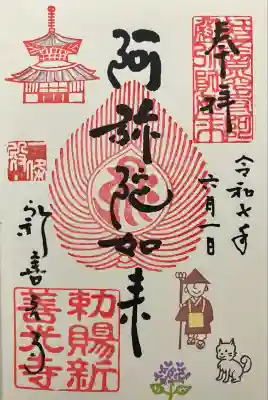 奉拝
令和七年
六月一日
阿弥陀如来
新善光寺
勅賜新
善光寺